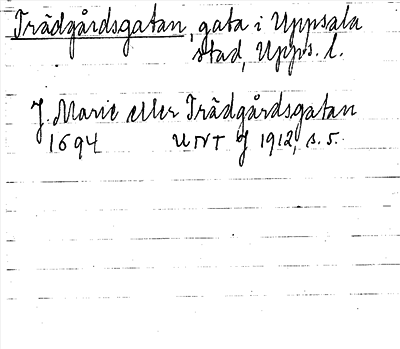 Trädgårdsgatan, gata i Uppsala
stad, Upps. l.
J. Marie eller Trädgårdsgatan
1694 UNT J 1912, s. 5.